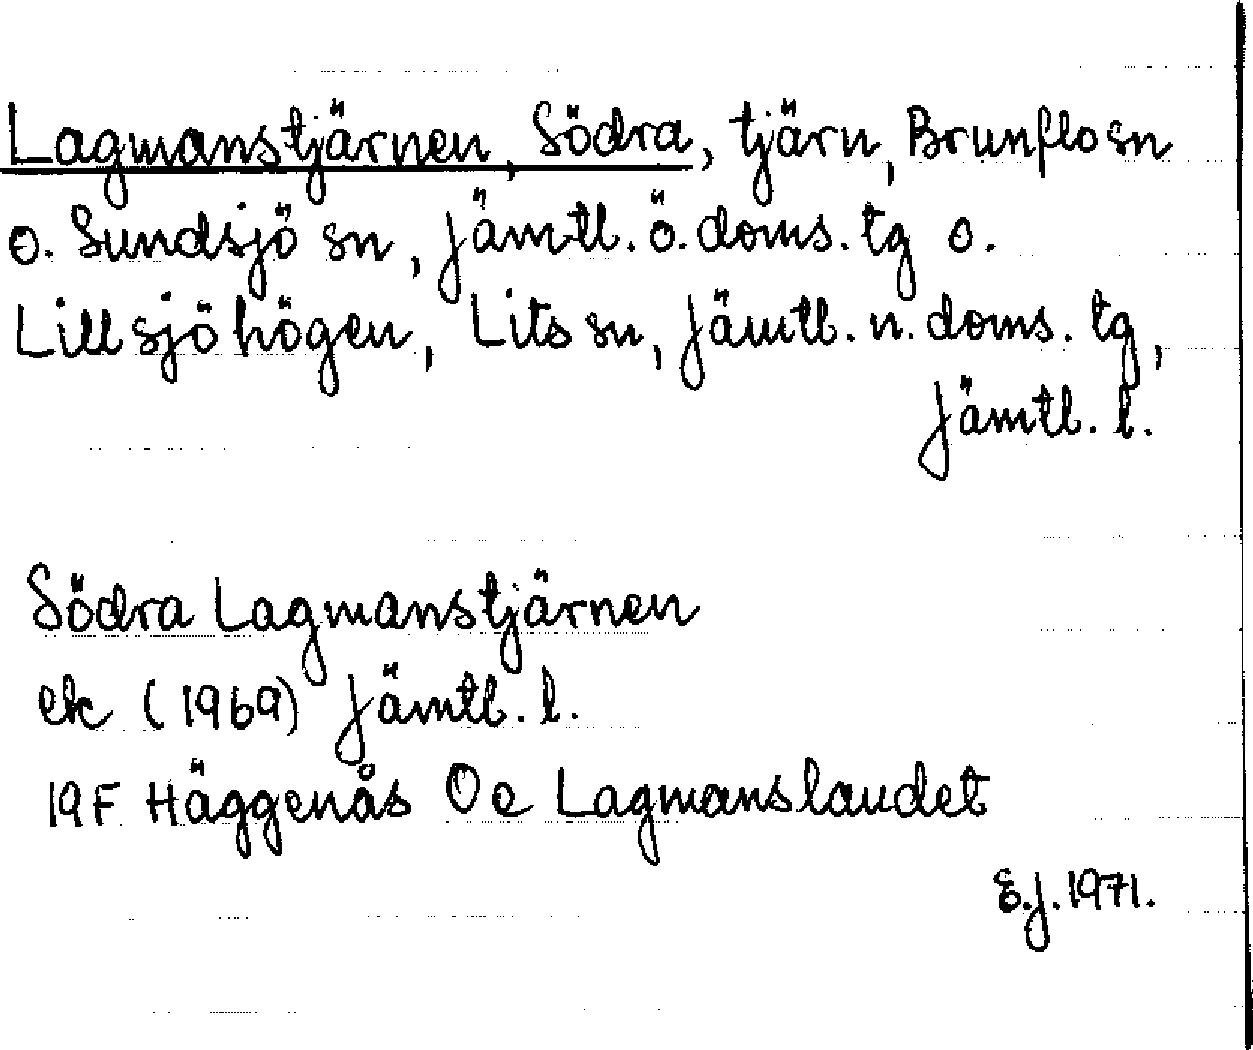 Lagmanstjärnen, Södra, tjärn, Brunflo sn
o. Sundsjö sn, Jämtl. ö. doms. tg o.
Lillsjöhögen, Lits sn, Jämtl. n. doms. tg,
Jämtl. l.
Södra Lagmanstjärnen
ek (1969) Jämtl. l.
19F Häggenås Oe Lagmanslandet
E.J. 1971.